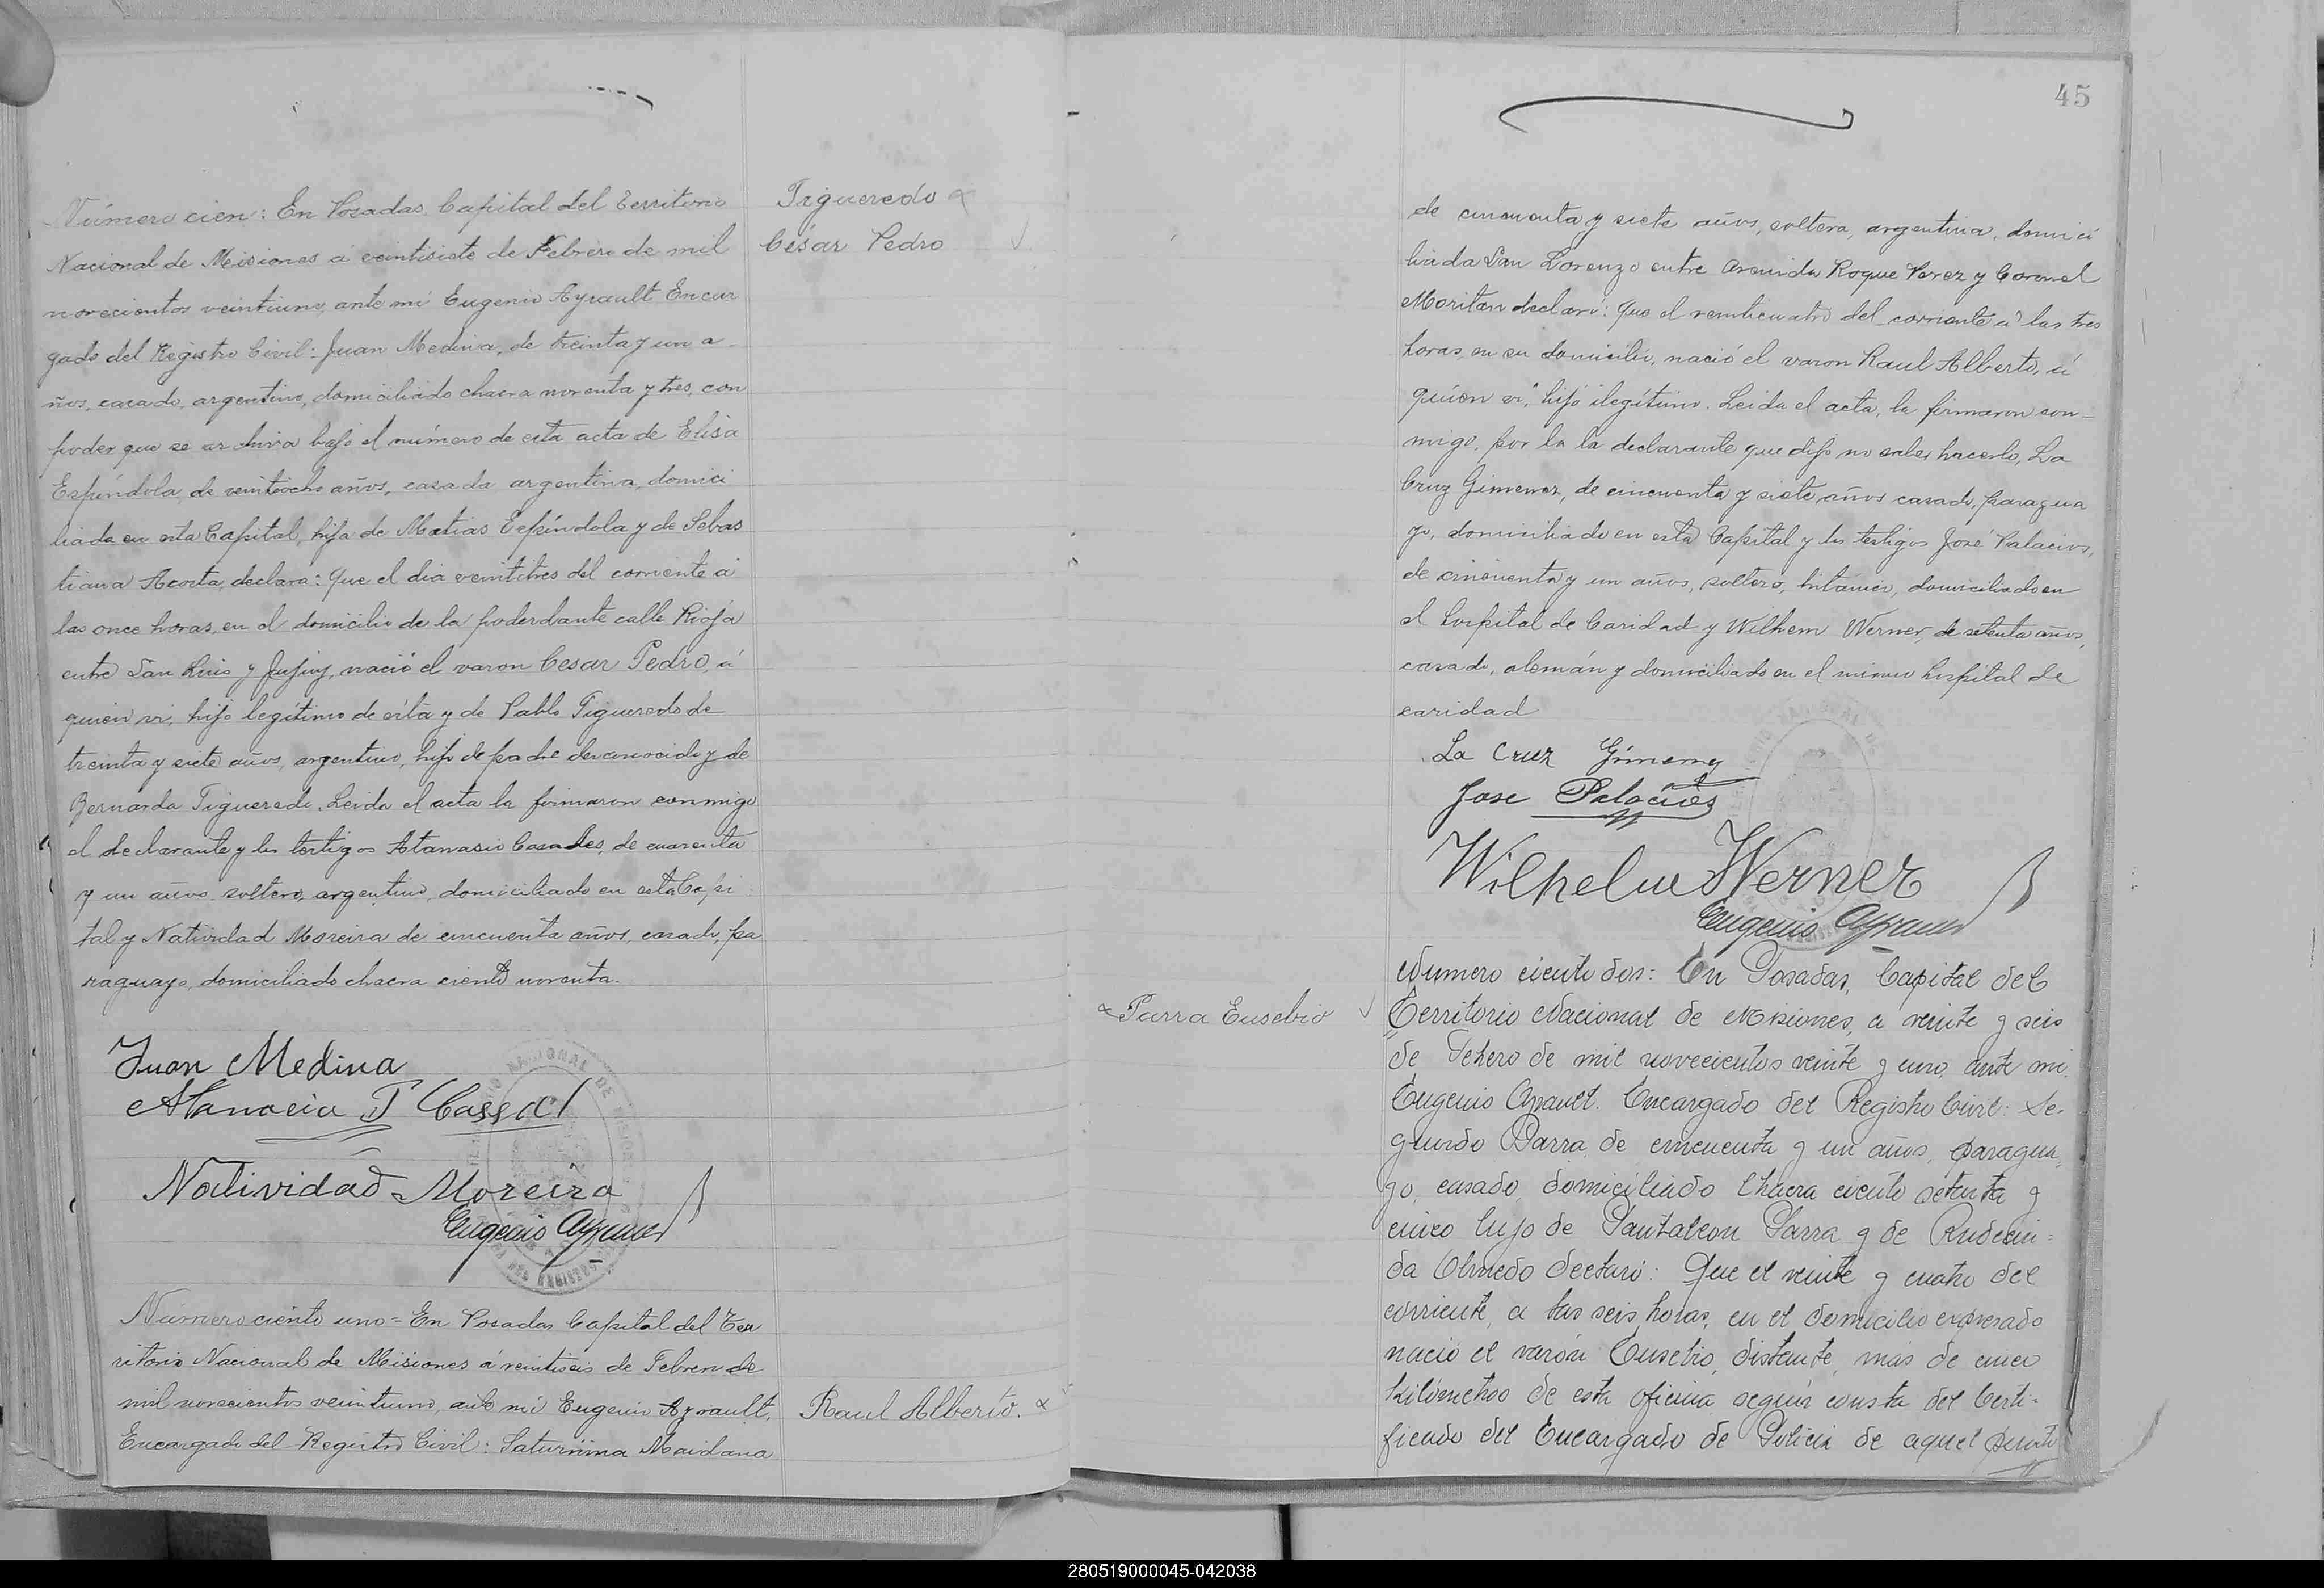 Número cien: En Posadas Capital del Territorio
Nacional de Misiones a veintisiete de Febrero de mil
novecientos veintiuno, ante mi Eugenio Ayrault Encar
gado del Registro Civil: Juan Medina, de treinta y un a-
ños, casado, argentino, domiciliado chacra noventa y tres, con
poder que se archiva bajo el número de esta acta de Elisa
Espíndola, de veintiocho años, casada argentina, domici
liada en esta Capital, hija de Matias Espíndola y de Sebas
tiana Acosta, declara: Que el dia veintitres del corriente a
las once horas, en el domicilio de la poderdante calle Rioja
entre San Luis y Jujuy, nació el varon Cesar Pedro, á
quien vi, hijo legítimo de ésta y de Pablo Figueredo de
treinta y siete años, argentino, hijo de padre desconocido y de
Bernarda Figueredo. Leida el acta la firmaron conmigo
el declarante y los testigos Atanasio Casales, de cuarenta
y un años soltero, argentino, domiciliado en esta Capi
tal y Natividad Moreira de cincuenta años, casado, pa
raguayo, domiciliado chacra ciento noventa.
Figueredo
César Pedro
Juan Medina
Atanacio P Cassal
Natividad Moreira
Eugenio Ayrault
Número ciento uno= En Posadas Capital del Ter
ritorio Nacional de Misiones á veintiseis de Febrero de
mil novecientos veintiuno, ante mi Eugenio Ayrault,
Encargado del Registro Civil: Saturnina Maidana
Raul Alberto.
45
de cincuenta y siete años, soltera, argentina, domici
liada San Lorenzo entre Avenida Roque Perez y Coronel
Moritan declaró: Que el veinticuatro del corriente a las tres
horas, en su domicilio, nació el varon Raul Alberto, á
quien vi, hijo ilegítimo. Leida el acta, la firmaron con-
migo, por la la declarante que dijo no saber hacerlo, La
Cruz Gimenez, de cincuenta y siete años casado, paragua
yo, domiciliado en esta Capital y los testigos José Palacios,
de cincuenta y un años, soltero, britanico, domiciliado en
el hospital de Caridad y Wilhem Werner, de setenta años,
casado, alemán y domiciliado en el mismo hospital de
caridad
La Cruz Gimenez
Jose Palacios
Wilhelm Werner
Eugenio Ayrault
Parra Eusebio
Numero ciento dos: En Posadas, Capital del
Territorio Nacional de Misiones, a veinte y seis
de Febrero de mil novecientos veinte y uno, ante mi
Eugenio Ayrault. Encargado del Registro Civil: Se-
gundo Parra, de cincuenta y un años, paragua
yo, casado, domiciliado Chacra ciento setenta y
cinco hijo de Pantaleon Parra y de Rudecin=
da Olmedo declaró: Que el veinte y cuatro del
corriente, a las seis horas, en el domicilio expresado
nació el varón Eusebio, distante, mas de cinco
kilómetros de esta oficina según consta del Certi-
ficado del Encargado de Policia de aquel punto
280519000045-042038